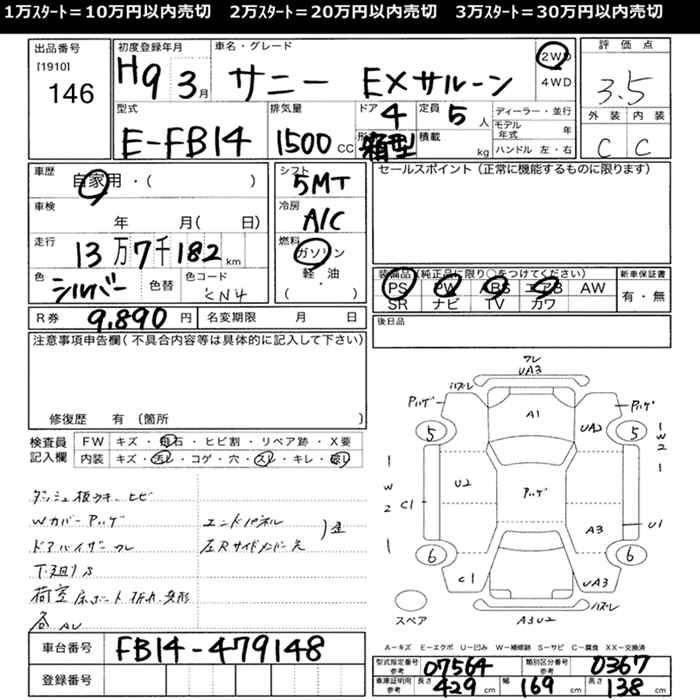 1万ｽﾀｰﾄ＝10万円以内売切　2万ｽﾀｰﾄ＝20万円以内売切　3万ｽﾀｰﾄ＝30万円以内売切
出品番号 初度登録年月 車名・グレード 評価点
[1910] 146 H9 3月 サニー EXサルーン 2WD 4WD 3.5
型式 排気量 ドア 定員 ディーラー・並行 外装 内装
E-FB14 1500 CC 4 5 人 モデル年式 年 C C
形 箱型 積載 kg ハンドル 左・右
車歴 自家用・( ) シフト 5MT セールスポイント(正常に機能するものに限ります)
車検 年 月( 日) 冷房 A/C
走行 13万7千182 km 燃料 ガソリン 軽・油 ( ・ )
色 シルバー 色替 色コード KN4
装備品(純正品に限り○をつけてください) 新車保証書
PS PW ABS エアB AW 有・無
SR ナビ TV カワ
R券 9,890 円 名変期限 月 日 後日品
注意事項申告欄(不具合内容等は具体的に記入して下さい)
修復歴 有 〔箇所 〕
検査員記入欄 FW キズ・飛石・ヒビ割・リペア跡・X要
内装 キズ・汚レ・コゲ・穴・スレ・キレ・
ダッシュ板ウキ ヒビ
Wカバー ハゲ エンドパネル
ドアバイザー ワレ 左Rサイドメンバー 先 歪
下廻りS
荷室 床ボード 折れ 変形
各AU
ワレ
UA3
ハズレ
ハゲ A1 ハゲ
5 UA2 5
1 W 2 1
U2 ハゲ
1 W 2 1 C1 A3 U1
6 6
C1 UA3
ハズレ
スペア A3U2
A－キズ E－エクボ U－凹み W－補修跡 S－サビ C－腐食 XX－交換済
車台番号 FB14-479148
型式指定番号 参考 07564 類別区分番号 参考 0367
登録番号
車庫証明用 参考 長さ 429 cm 幅 169 cm 高さ 138 cm